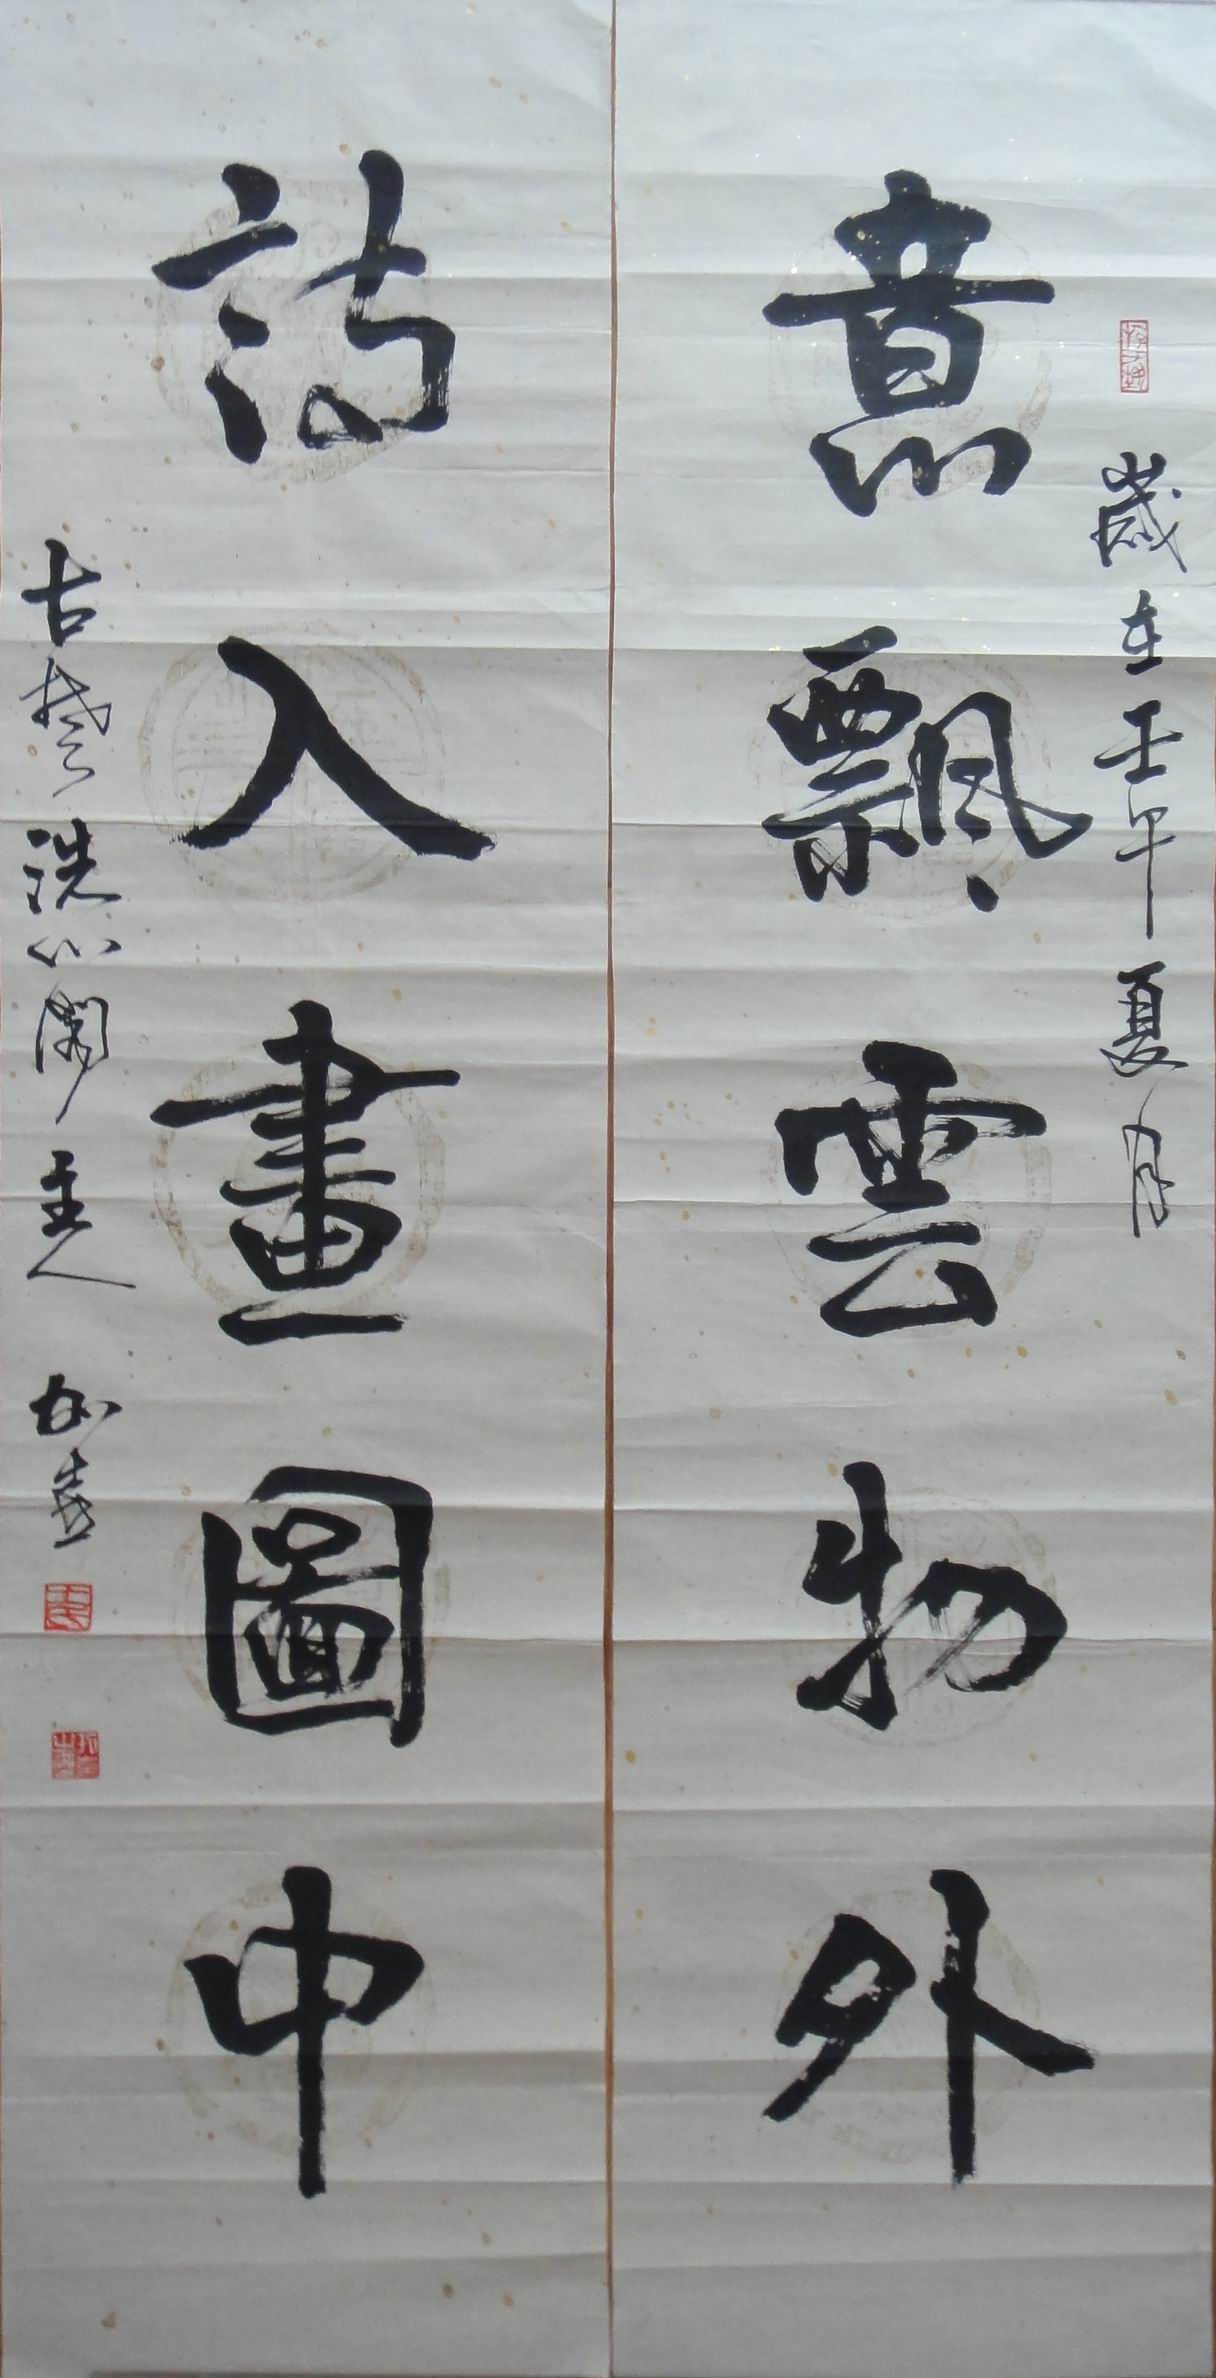 歲在壬午夏月
意飄雲物外
詩入畫圖中
古楚洗心閣主人